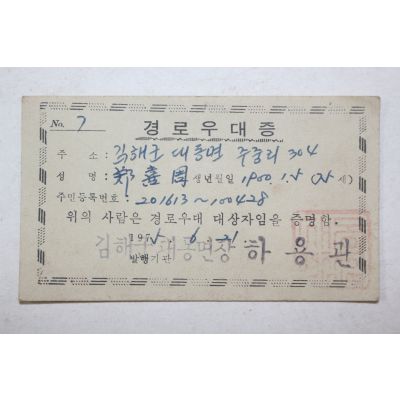 No. 7
경로우대증
주 소 : 김해군 대동면 주중리 304
성 명 : 鄭 周 생년월일 1900.1.5 (75세)
주민등록번호 : 201613~100428
위의 사람은 경로우대 대상자임을 증명함.
1975 6 21
김해군 대동면장 하용관
발행기관